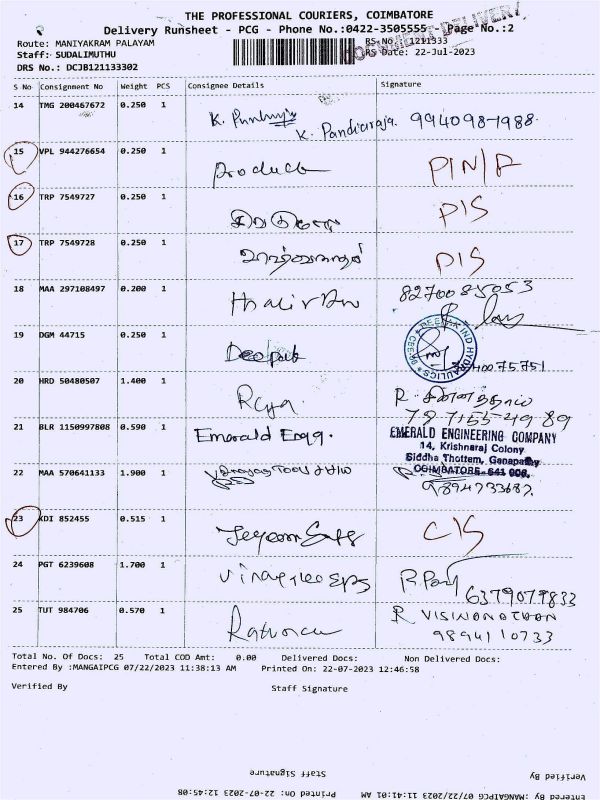 THE PROFESSIONAL COURIERS, COIMBATORE
Delivery Runsheet - PCG - Phone No.:0422-3505555 - Page No.:2
DOCUMENT DELIVERY
Route: MANIYAKRAM PALAYAM
RS No.: 1211333
Staff: SUDALIMUTHU
RS Date: 22-Jul-2023
DRS No.: DCJB121133302
S No Consignment No Weight PCS Consignee Details Signature
14 TMG 200467672 0.250 1
K. Pandiaraja. 994098-1988.
15 VPL 944276654 0.250 1
Product PIN/F
16 TRP 7549727 0.250 1
D/S
17 TRP 7549728 0.250 1
D/S
18 MAA 297108497 0.200 1
8270085053
19 DGM 44715 0.250 1
Deepak
20 HRD 50480507 1.400 1
Raja.
21 BLR 1150997808 0.590 1
Emerald Engg.
EMERALD ENGINEERING COMPANY
14, Krishnaraj Colony
Siddha Thottam, Ganapathy
COIMBATORE - 641 006.
22 MAA 570641133 1.900 1
9894733687.
23 KDI 852455 0.515 1
C/S
24 PGT 6239608 1.700 1
6379079833
25 TUT 984706 0.570 1
R VISWANATHAN
9894110733
Total No. Of Docs: 25 Total COD Amt: 0.00 Delivered Docs: Non Delivered Docs:
Entered By :MANGAIPCG 07/22/2023 11:38:13 AM Printed On: 22-07-2023 12:46:58
Verified By Staff Signature
Verified By Staff Signature
Entered By :MANGAIPCG 07/22/2023 11:41:01 AM Printed On: 22-07-2023 12:45:08